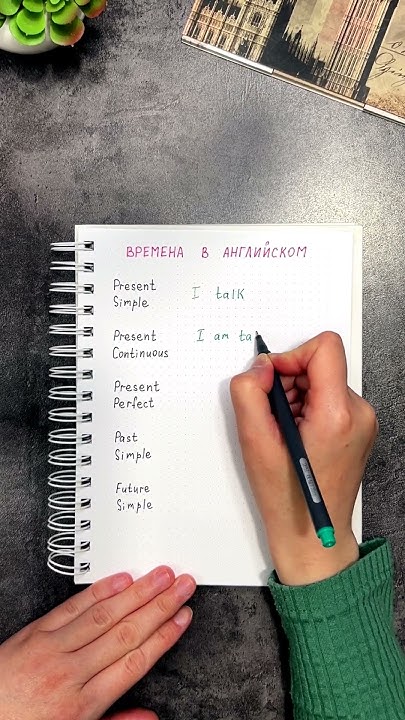 ВРЕМЕНА В АНГЛИЙСКОМ
Present
Simple
I talk
Present
Continuous
I am ta
Present
Perfect
Past
Simple
Future
Simple